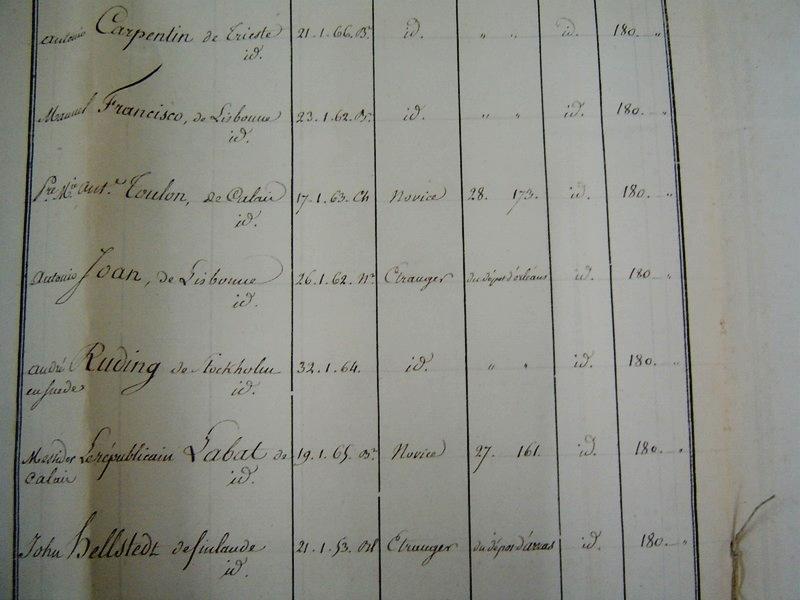 Antonio Carpentin de Trieste 21.1.66. Bn. id. " " id. 180. "
id.
Manuel Francisco, de Lisbonne 23.1.62. Bn. id. " " id. 180. "
id.
Pre. Mie. Ant.e Toulon, de Calais 17.1.63. Ch Novice 28. 173. id. 180. "
id.
Antonio Joan, de Lisbonne 26.1.62. Nr. Etranger du dépot d'orléans id. 180. "
id.
André Ruding de Stockholm 32.1.64. id. " " id. 180. "
en suede id.
Messidor Lerépublicain Labat de 19.1.65. Bn. Novice 27. 161. id. 180. "
Calais id.
John Hellstedt de finlande 21.1.53. Etranger du dépot d'arras id. 180. "
id.